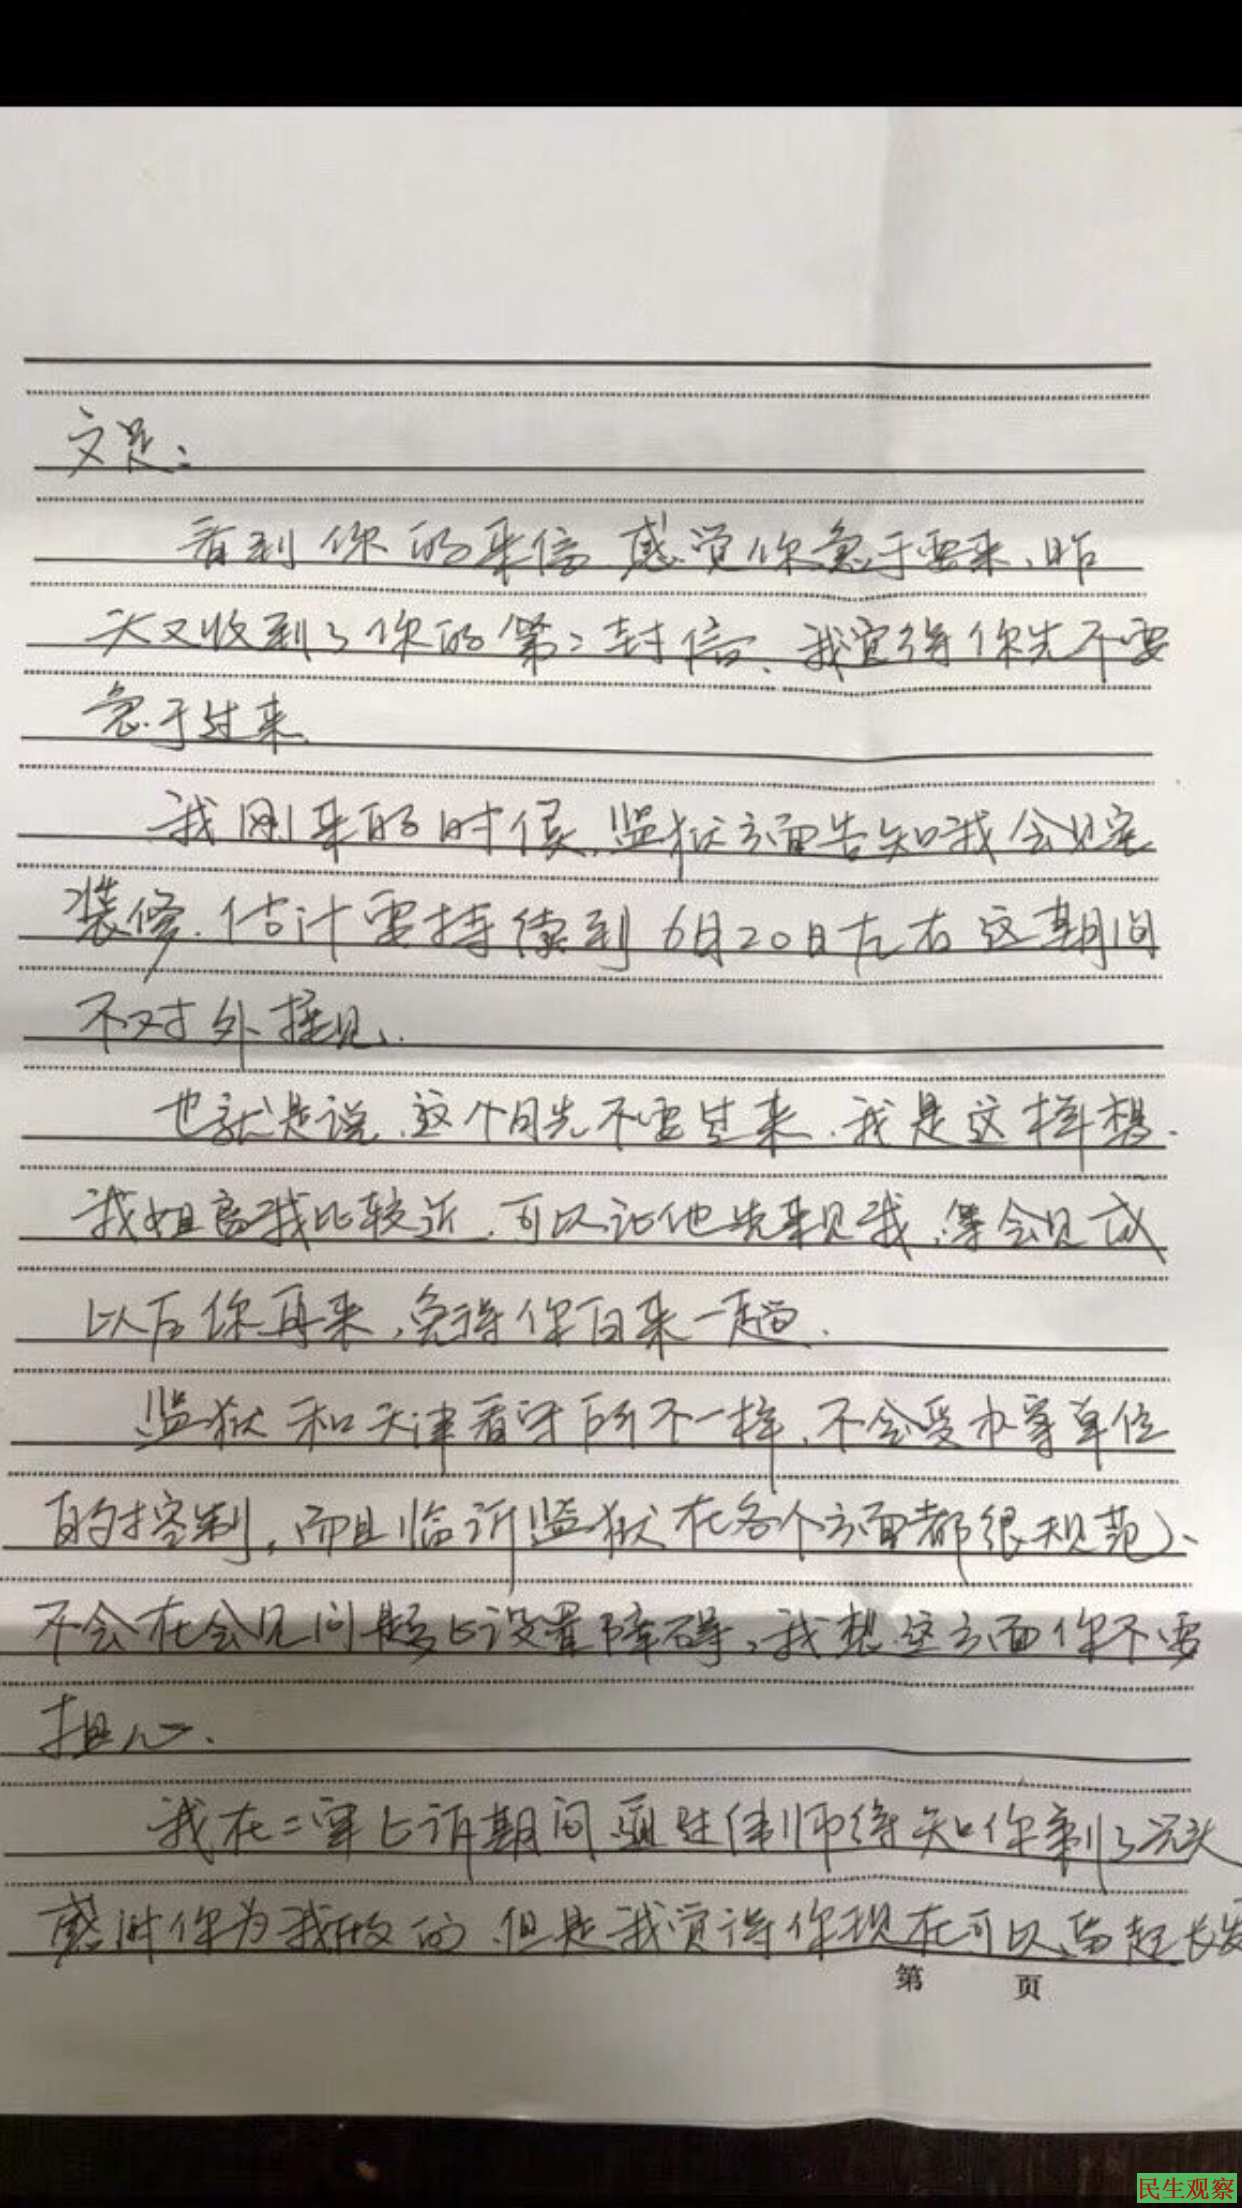 文足：
看到你的来信，感觉你急于要来，昨
天又收到了你的第二封信，我觉得你先不要
急于过来。
我刚来的时候，监狱方面告知我会见室
装修，估计要持续到6月20日左右这期间
不对外接见。
也就是说，这个月先不要过来，我是这样想，
我姐离我比较近，可以让他先来见我，等会见成
以后你再来，免得你白来一趟。
监狱和天津看守所不一样，不会受办案单位
的控制，而且临沂监狱在各个方面都很规范，
不会在会见问题上设置障碍，我想这方面你不要
担心。
我在二审上诉期间，通过律师得知你剃了光头
感谢你为我做的，但是我觉得你现在可以留起长发
第 页
民生观察